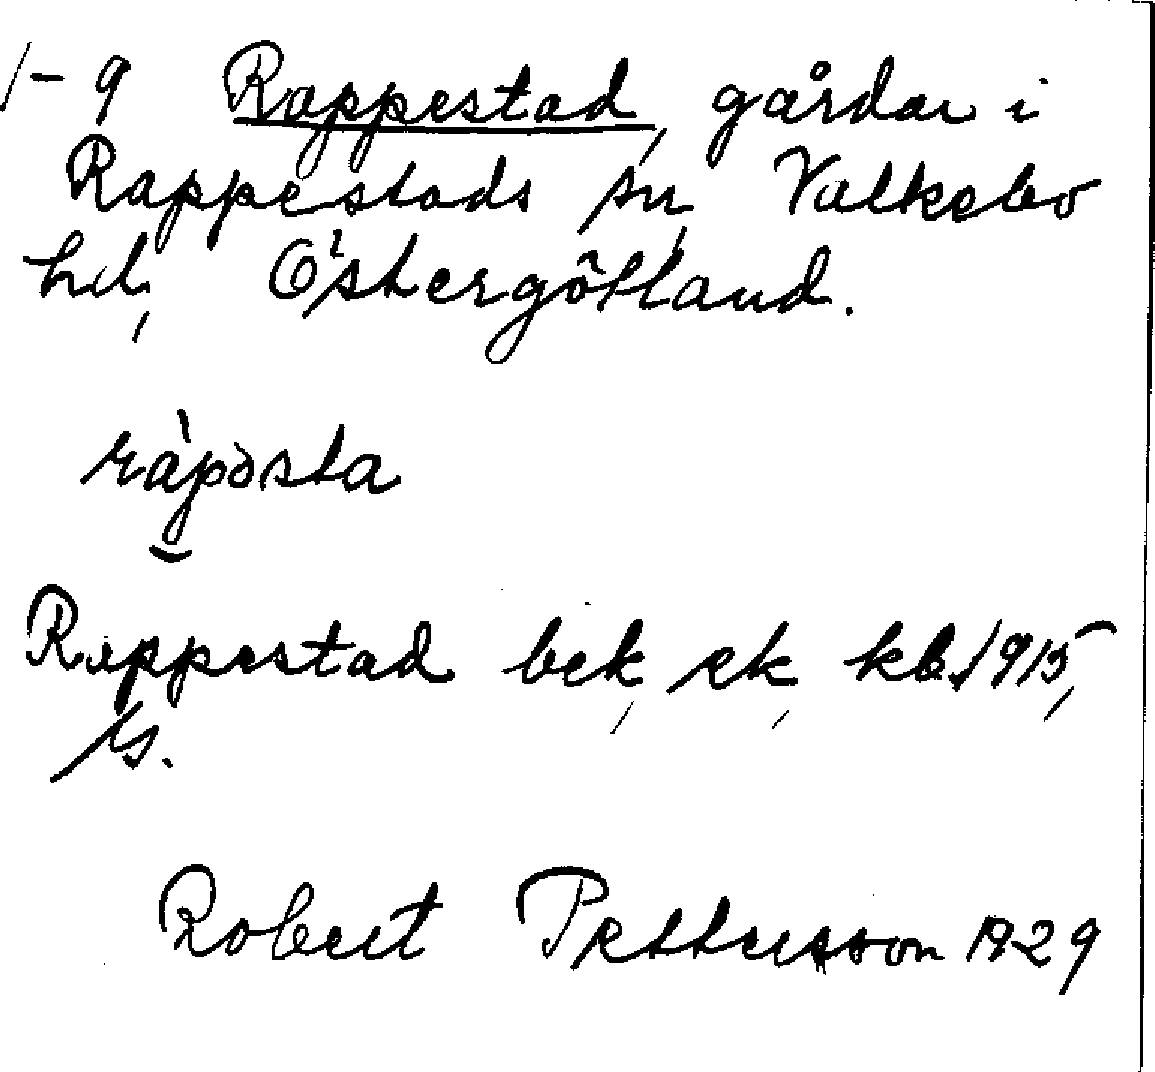 1-9 Rappestad, gårdar i
Rappestads sn, Valkebo
hd, Östergötland.
ràpàsta
Rappestad bek, ek, kb. 1915,
Robert Pettersson 1929